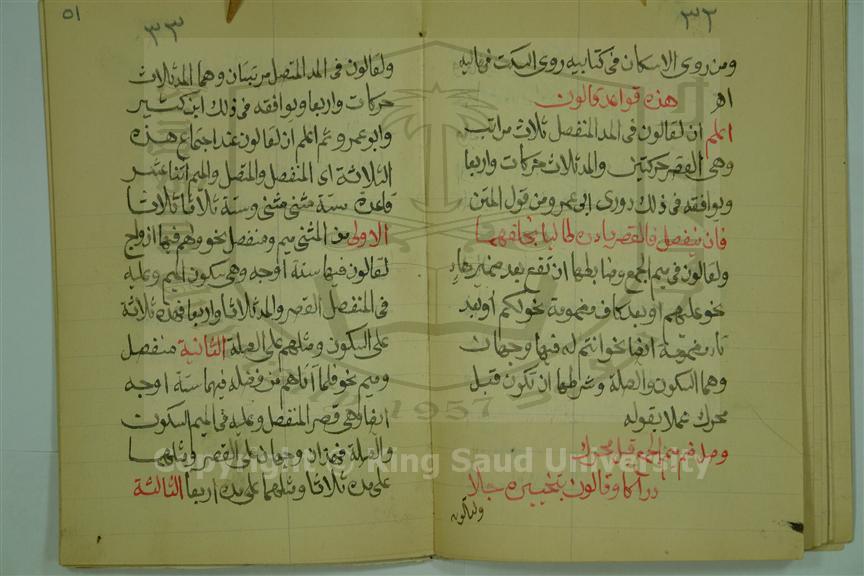 ٣٢
ومن روى الاسكان فى كتابيه روى السكت فى ماليه
اهـ هذه قواعد قالون
اعلم ان لقالون فى المد المنفصل ثلاث مراتب
وهى القصر حركتين والمد ثلاث حركات واربعا
ويوافقه فى ذلك دورى ابى عمرو من قول المتن
فان ينفصل فالقصر بادره طالبا بخلفهما
ولقالون فى ميم الجمع وضابطها ان تقع بعد ضمير هاء
نحو عليهم او بعد كاف مضمومة نحو لكم او بعد
تاء مضمومة ايضا نحو انتم له فيها وجهان
وهما السكون والصلة وشرطها ان تكون قبل
محرك عملا بقوله
وصل ضم ميم الجمع قبل محرك
دراكا وقالون بتخييره جلا
ولقالون
٥١
٣٣
ولقالون فى المد المتصل مرتبتان وهما المد ثلاث
حركات واربعا ويوافقه فى ذلك ابن كثير
وابو عمرو ثم اعلم ان لقالون عند اجتماع هذه
الثلاثة اى المنفصل والمتصل والميم اثنا عشر
قاعدة ستة مثنى مثنى وستة ثلاثا ثلاثا
الاولى من المثنى ميم ومنفصل نحو ولهم فيها ازواج
لقالون فيها ستة اوجه وهى سكون الميم وعليه
فى المنفصل القصر والمد ثلاثا واربعا فهذه ثلاثة
على السكون ومثلهم على الصلة الثانية منفصل
وميم نحو فلما آتاهم من فضله فيها ستة اوجه
ايضا وهى قصر المنفصل وعليه فى الميم السكون
والصلة فهذان وجهان على القصر ومثلهما
على مده ثلاثا ومثلهما على مده اربعا الثالثة
Copyright © King Saud University
1957